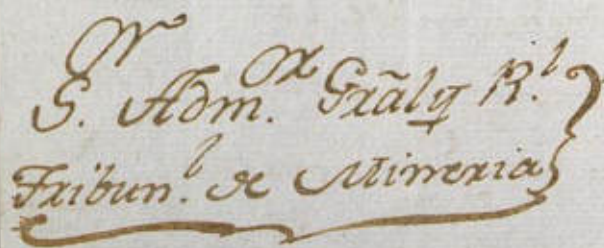 S.or Adm.or Grãl y R.l
Tribun.l de Minreria